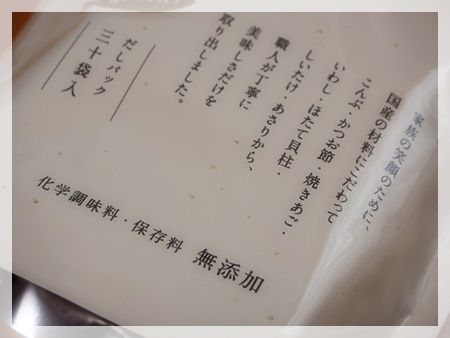 家族の笑顔のために、
国産の材料にこだわって
こんぶ・かつお節・焼きあご・
いわし・ほたて貝柱・
しいたけ・あさりから、
職人が丁寧に
美味しさだけを
取り出しました。
だしパック
三十袋入
化学調味料・保存料 無添加